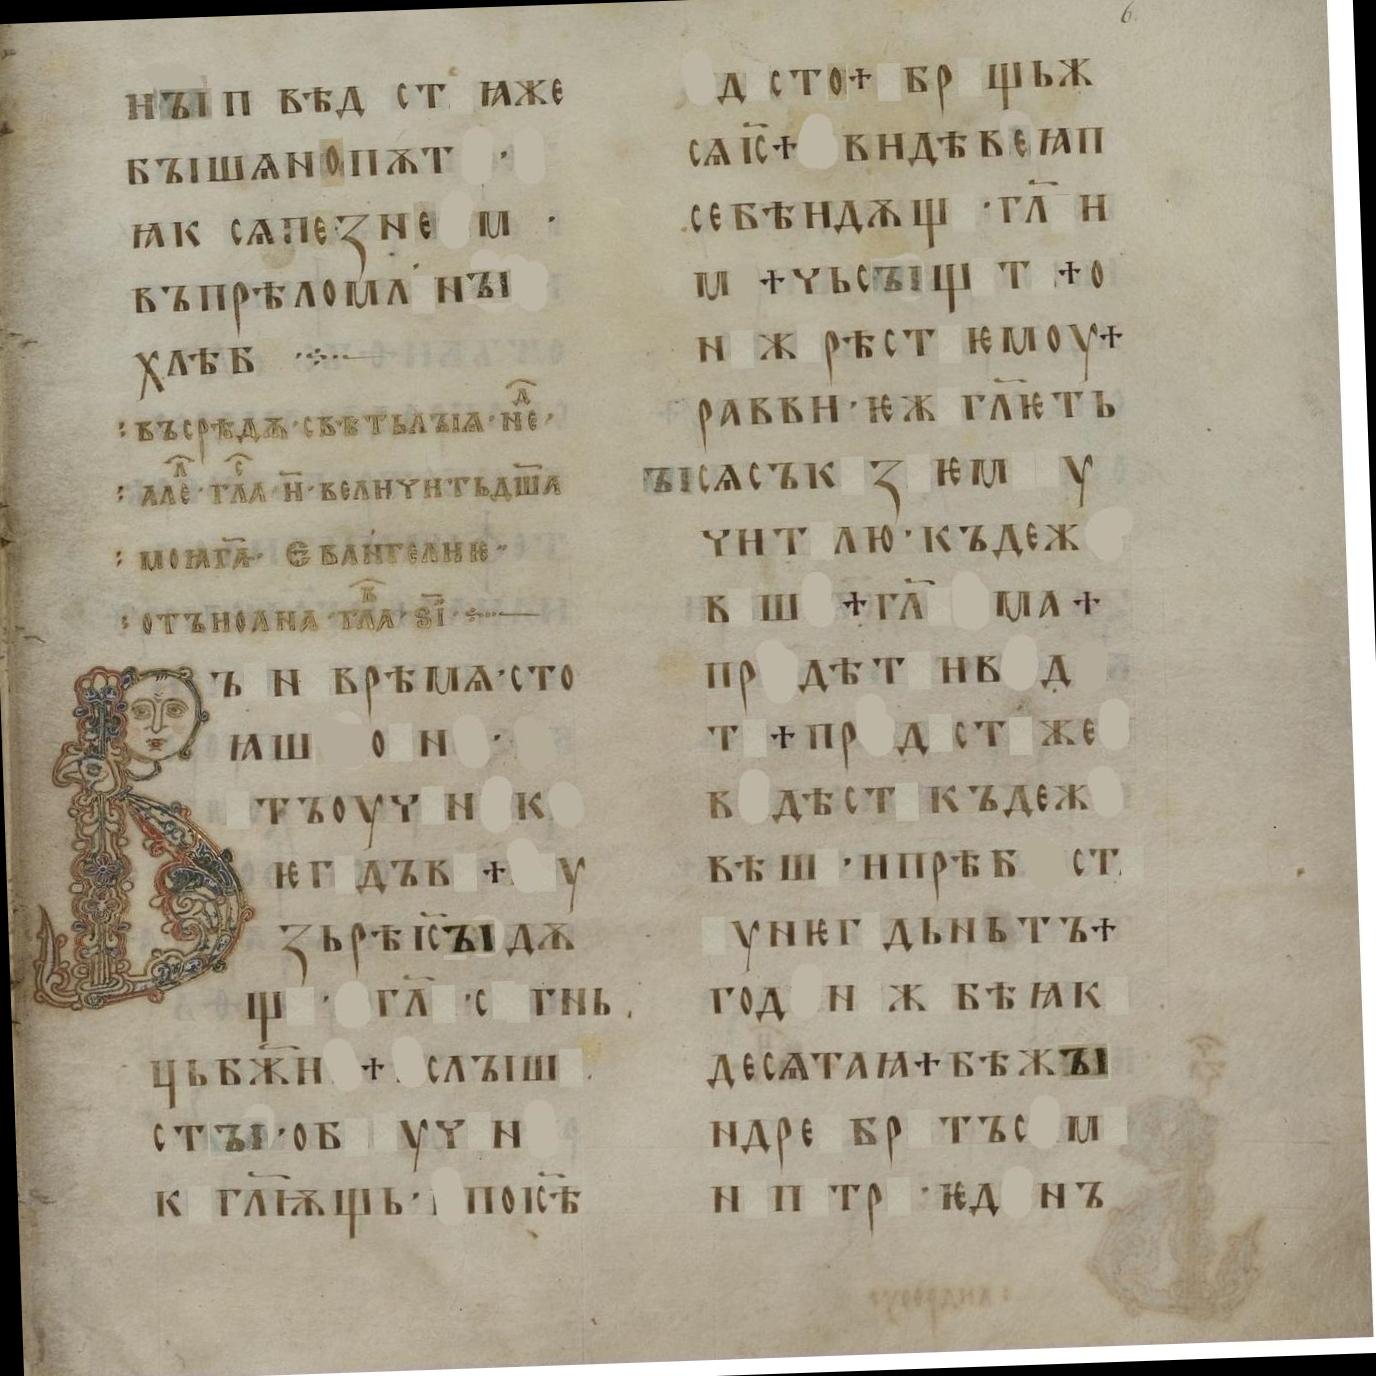 6.
нꙑ п вѣд ст ꙗже
бꙑшѧнопѫт ·
ꙗк сѧпеꙁне м ·
въпрѣломл нꙑ
хлѣб
:въсрѣдѫ·свѣтьлꙑѩ·не҃д·
:але҃л·гла҃с н҃·величитьдш҃а
:моꙗга҃· Еваньгелиѥ·
:отъиоана·гла҃в·ѕ҃і·
ъ н врѣмѧ·сто
ꙗш о н ·
тъоуч н к
ѥг дъв + у
ꙁьрѣі҃сꙑдѫ
щ · гл҃ ·с гнь
цьбж҃и + слꙑш
стꙑ·об уч н
к гл҃ѭщь· покі҃ѣ
д сто+ бр щьж
сѧі҃с+ видѣвеꙗп
себѣидѫщ ·гл҃ и
м +чьсꙑщ т +о
н ж рѣст ѥмоу+
равви·ѥж гл҃ѥть
ꙑсѧсък ꙁ ѥм у
чит лю·къдеж
в ш +гл҃ ма+
пр дѣт ив д
т +пр д ст же
в дѣст къдеж
вѣш ·ипрѣб ст
уиѥг дьньтъ+
год н ж бѣꙗк
десѧтаꙗ+бѣжꙑ
ндре бр тъс м
н п тр ·ѥд нъ